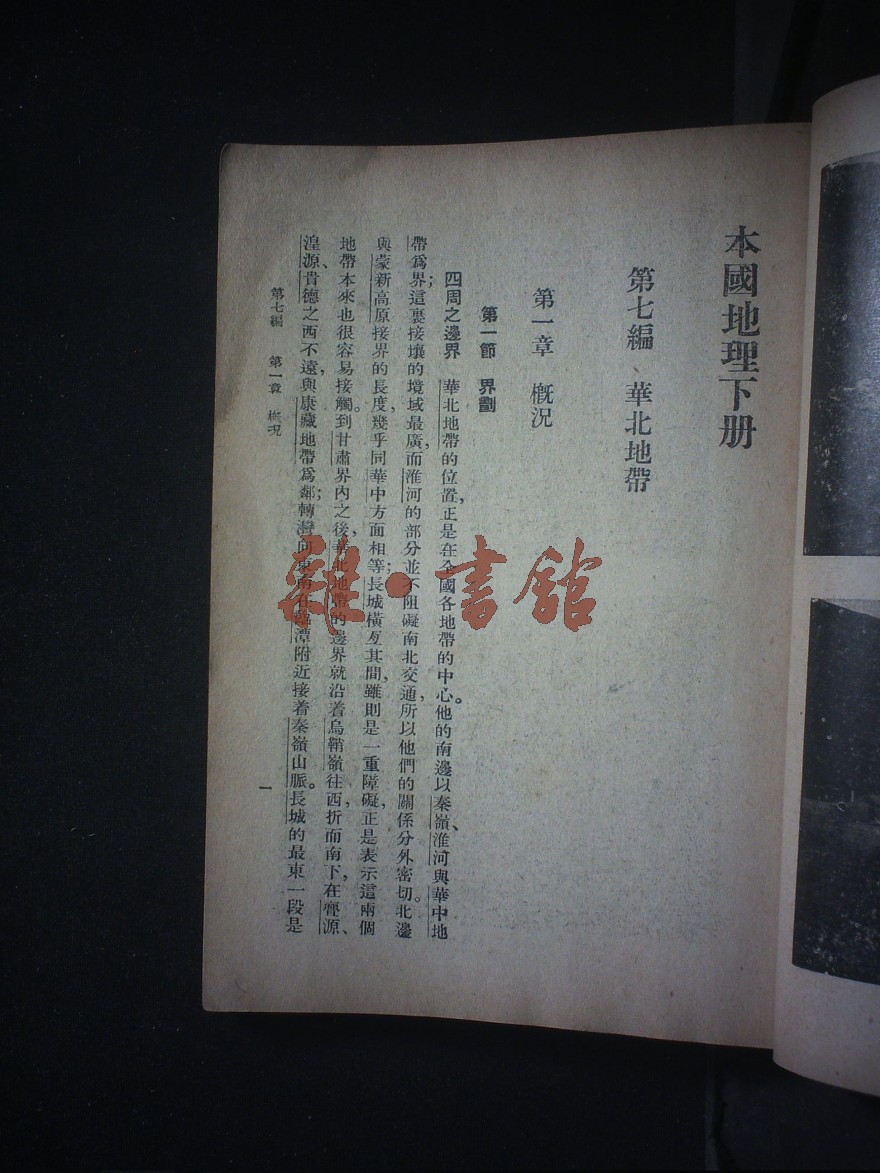 本國地理下册
第七編 華北地帶
第一章 概況
第一節 界劃
四周之邊界 華北地帶的位置,正是在全國各地帶的中心。他的南邊以秦嶺、淮河與華中地
帶爲界;這裏接壤的境域最廣,而淮河的部分並不阻礙南北交通,所以他們的關係分外密切。北邊
與蒙新高原接界的長度,幾乎同華中方面相等;長城橫亙其間,雖則是一重障礙,正是表示這兩個
地帶本來也很容易接觸。到甘肅界內之後,華北地帶的邊界就沿着烏鞘嶺往西,折而南下,在亹源、
湟源、貴德之西不遠,與康藏地帶爲鄰;轉灣向東南在臨潭附近接着秦嶺山脈。長城的最東一段是
第七編 第一章 概況
一
雜·書館